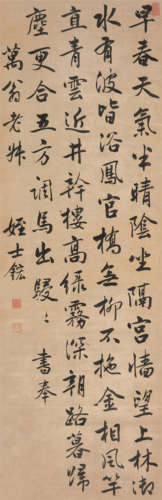 早春天氣半晴陰坐隔宮牆望上林御
水有波皆浴鳳官橋無柳不拖金相風竿
直青雲近井幹樓高綠霧深朝路暮歸
塵更合五方調馬出駸〻 書奉
萬翁老叔 姪士鋐